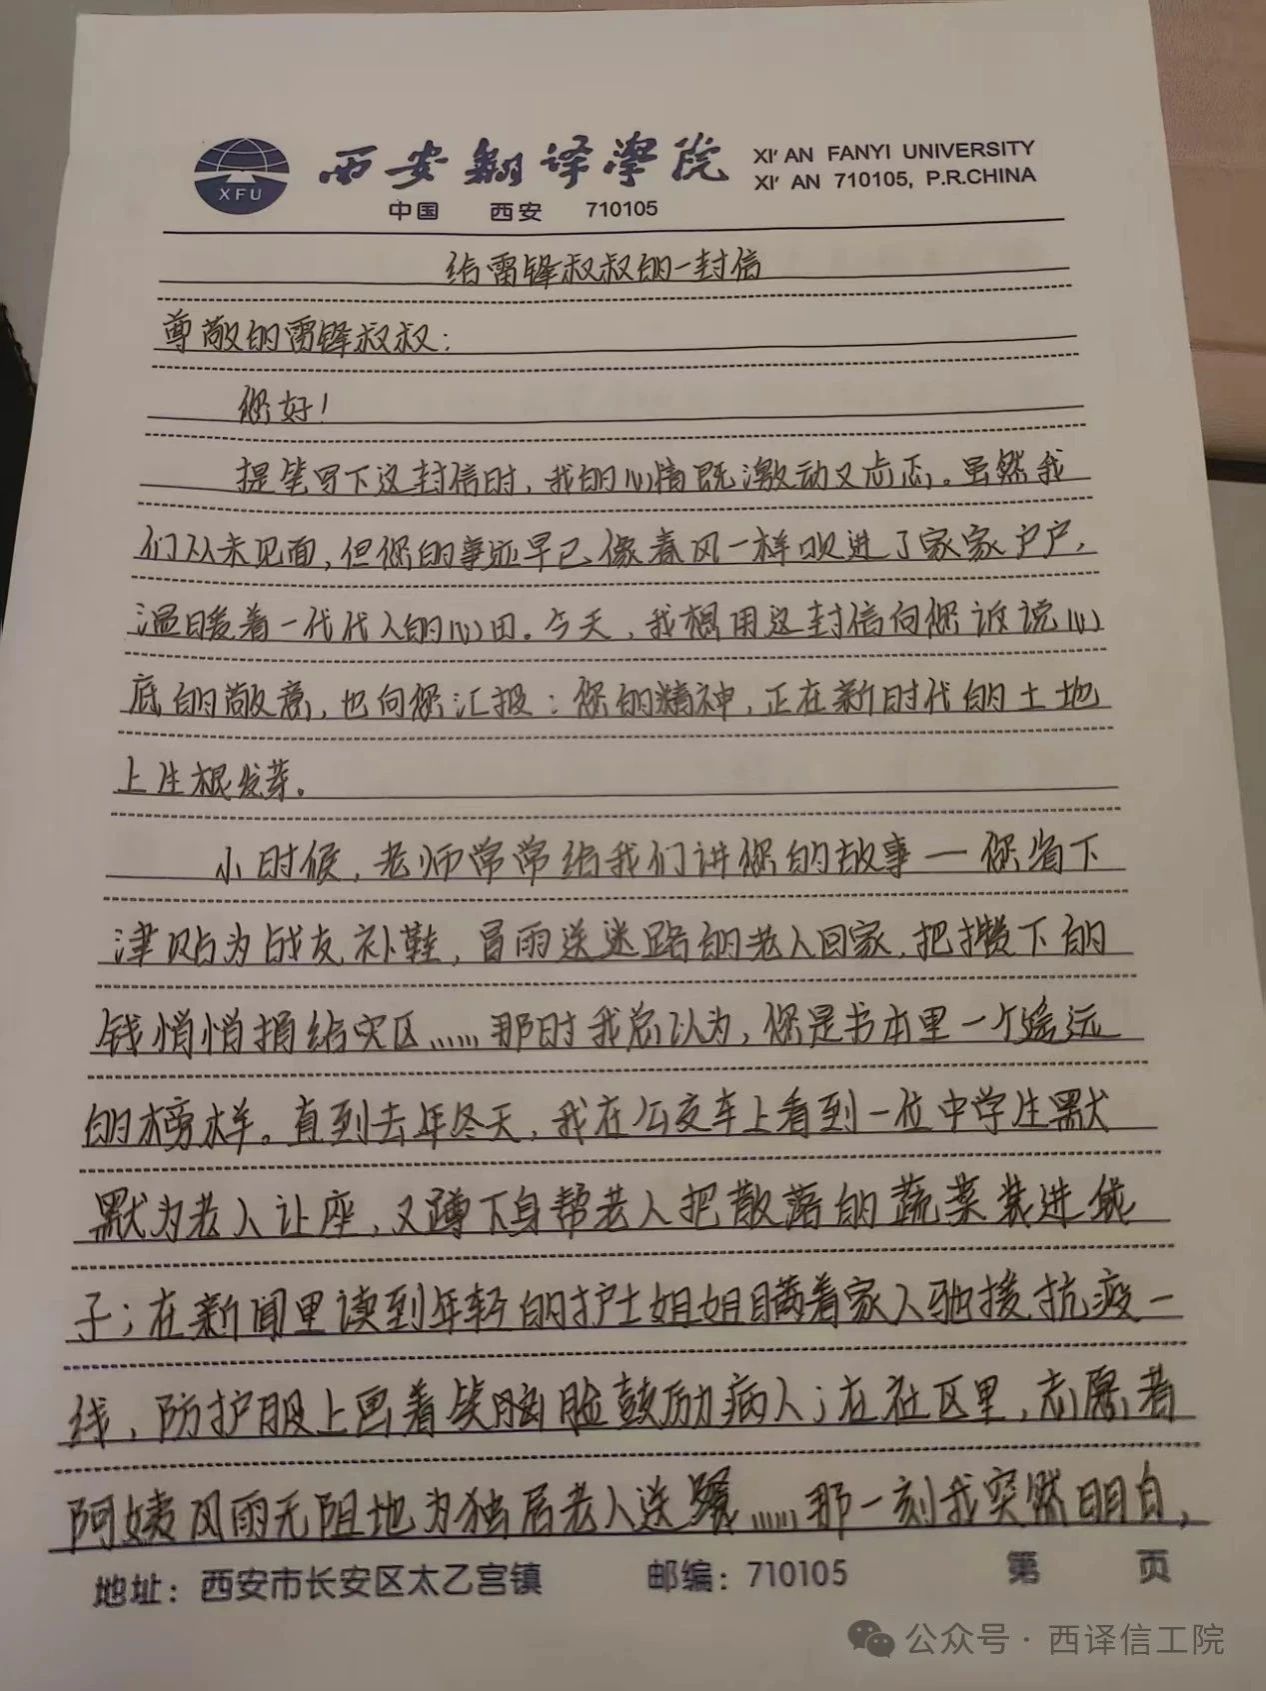 西安翻译学院
XI' AN FANYI UNIVERSITY
XI' AN 710105, P.R.CHINA
XFU
中国 西安 710105
给雷锋叔叔的一封信
尊敬的雷锋叔叔:
您好!
提笔写下这封信时,我的心情既激动又忐忑。虽然我
们从未见面,但您的事迹早已像春风一样吹进了家家户户,
温暖着一代代人的心田。今天,我想用这封信向您诉说心
底的敬意,也向您汇报:您的精神,正在新时代的土地
上生根发芽。
小时候,老师常常给我们讲您的故事—您省下
津贴为战友补鞋,冒雨送迷路的老人回家,把攒下的
钱悄悄捐给灾区……那时我总以为,您是书本里一个遥远
的榜样。直到去年冬天,我在公交车上看到一位中学生默
默为老人让座,又蹲下身帮老人把散落的蔬菜装进袋
子;在新闻里读到年轻的护士姐姐瞒着家人驰援抗疫一
线,防护服上画着笑脸鼓励病人;在社区里,志愿者
阿姨风雨无阻地为独居老人送……那一刻我突然明白,
地址:西安市长安区太乙宫镇 邮编:710105 第 页
公众号·西译信工院